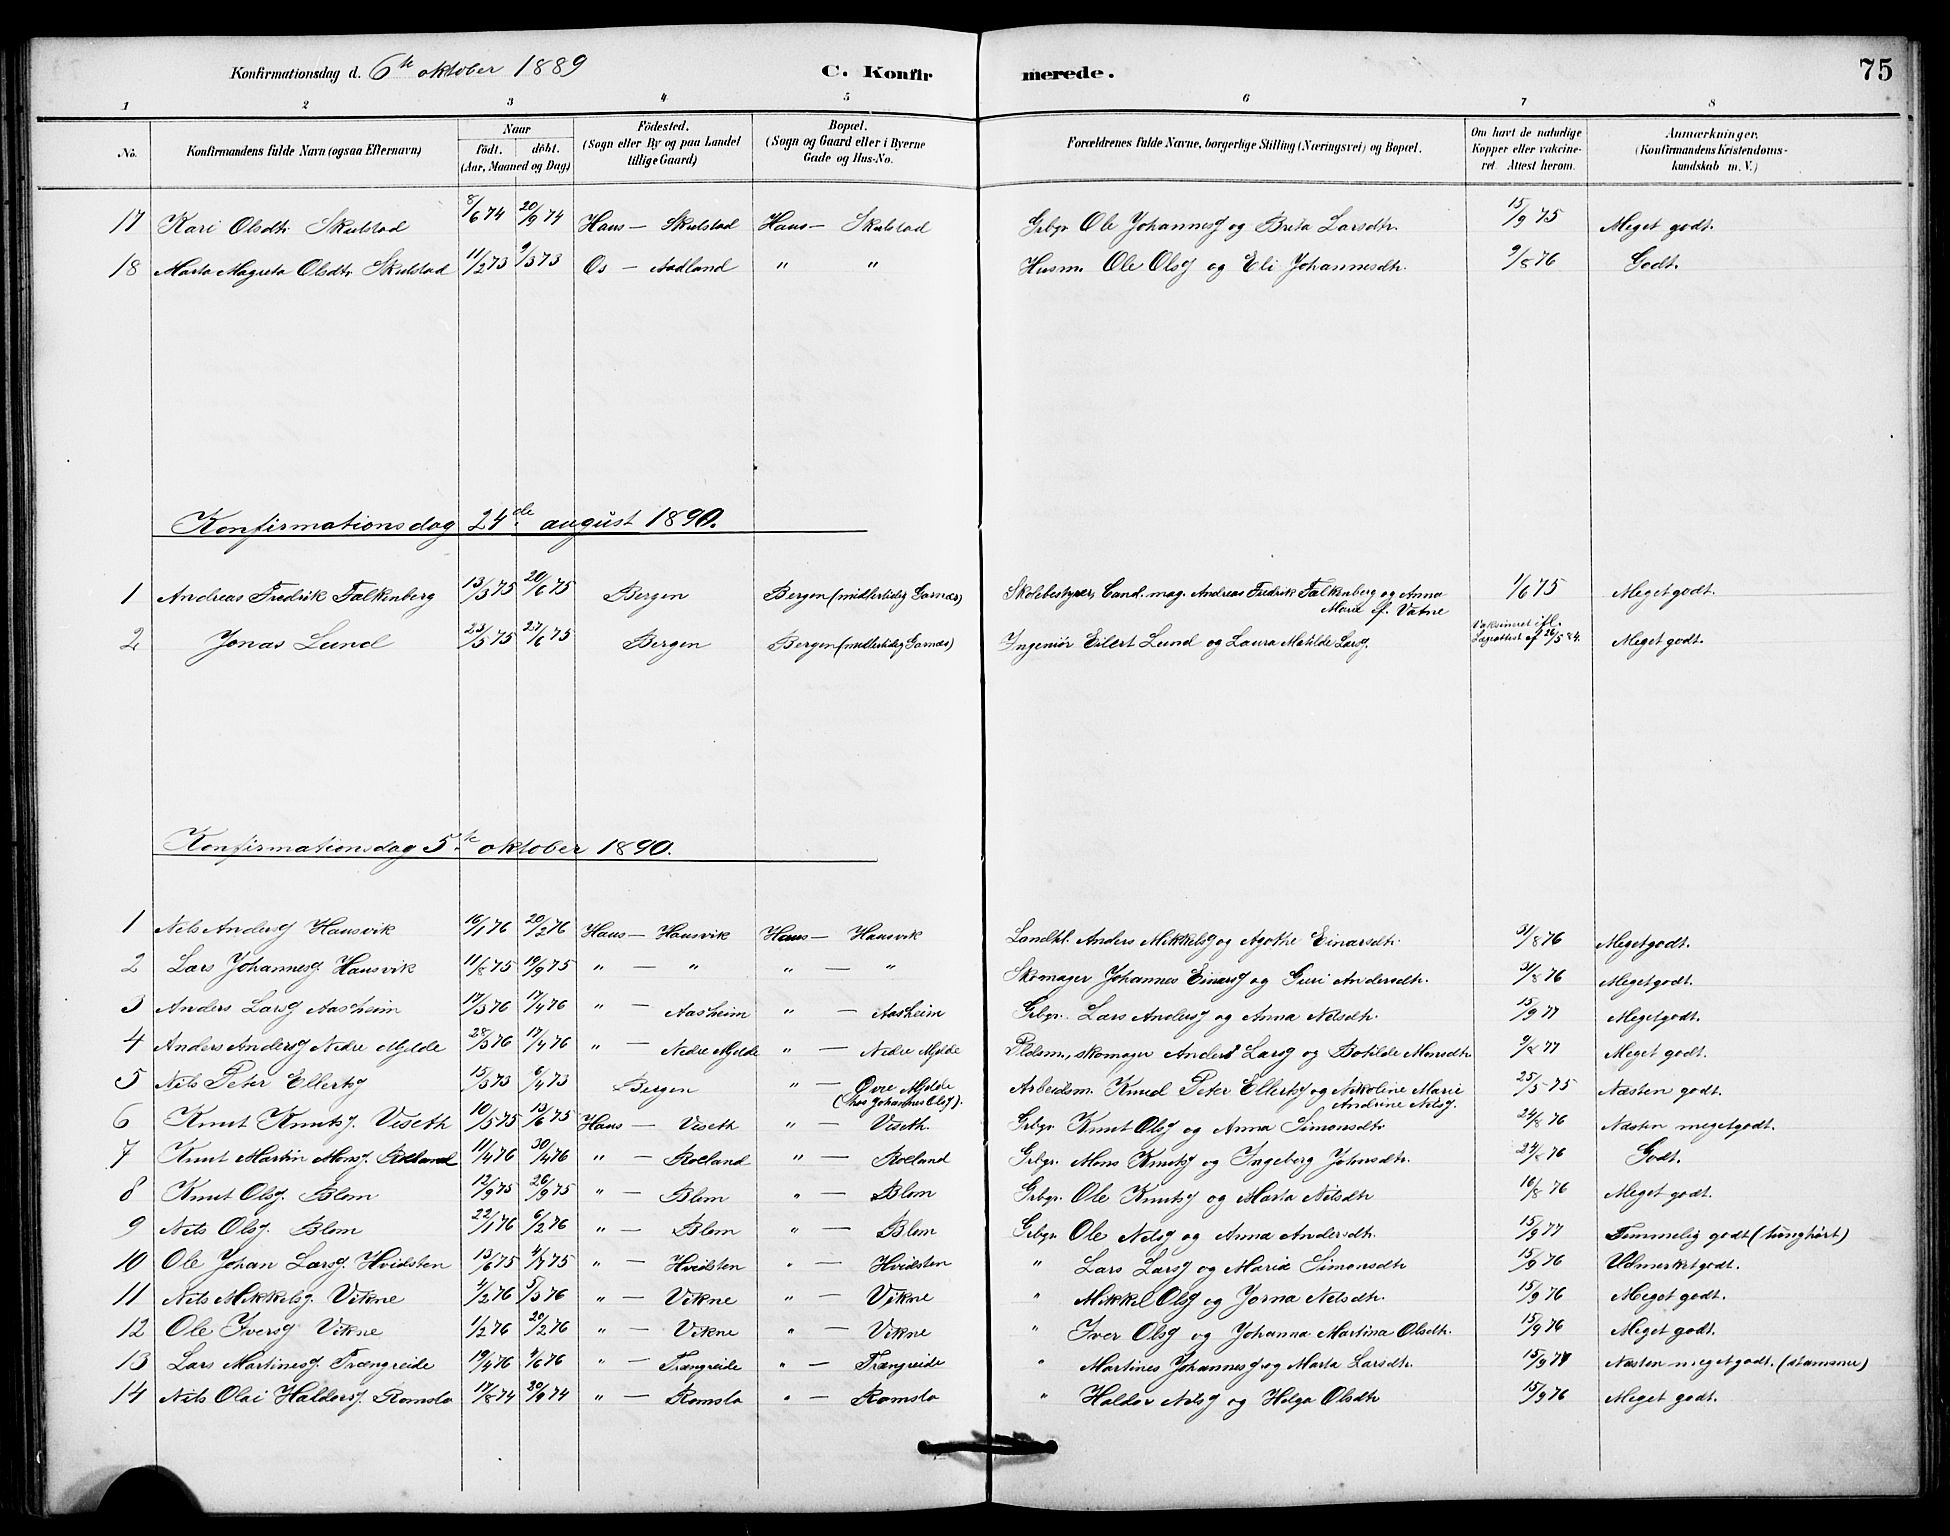 Konfirmationsdag d. 6te oktober 1889 C. Konfirmerede. 75
1 2 3 4 5 6 7 8
No. Konfirmandens fulde Navn (ogsaa Efternavn) Naar födt. döbt. (Aar, Maaned og Dag) Födested. (Sogn eller By og paa Landet tillige Gaard) Bopæl. (Sogn og Gaard eller i Byerne Gade og Hus-No. Forældrenes fulde Navne, borgerlige Stilling (Næringsvei) og Bopæl. Om havt de naturlige Kopper eller vakcineret. Attest herom. Anmærkninger. (Konfirmandens Kristendomskundskab m. V.)
17 Kari Olsdtr. Skulstad 8/6 74 20/9 74 Haus — Skulstad Haus — Skulstad Grbgr. Ole Johannesj og Brita Larsdtr. 15/9 75 Meget godt.
18 Marta Magreta Olsdtr. Skulstad 11/2 73 9/3 73 Os — Aadland " " Husm. Ole Olsj og Eli Johannesdtr. 9/8 76 Godt.
Konfirmationsdag 24de august 1890.
1 Andreas Fredrik Falkenberg 13/3 75 20/6 75 Bergen Bergen (midlertidig Garnæs) Skolebestyrer, Cand. mag. Andreas Fredrik Falkenberg og Anna
Marie f. Vatne 1/6 75 Meget godt.
2 Jonas Lund 23/5 75 27/6 75 Bergen Bergen (midlertidig Garnæs) Ingeniör Eilert Lund og Laura Matilde Larsj. Vaksineret ifl.
Lægeattest af 26/5 84. Meget godt.
Konfirmationsdag 5te oktober 1890.
1 Nils Andersj Hausvik 16/1 76 20/2 76 Haus — Hausvik Haus — Hausvik Landhl. Anders Mikkelsj og Agothe Einarsdtr. 31/8 76 Meget godt.
2 Lars Johannesj. Hausvik 11/8 75 19/9 75 " — " " — " Skomager Johannes Einarsj og Guri Andersdtr. 31/8 76 Meget godt.
3 Anders Larsj Aasheim 17/3 76 17/4 76 " — Aasheim " — Aasheim Grbgr. Lars Andersj og Anna Nilsdtr. 15/9 77 Meget godt.
4 Anders Andersj Nedre Mjelde 28/3 76 17/4 76 " — Nedre Mjelde " — Nedre Mjelde Pldsm., skomager Anders Larsj og Botilde Monsdtr. 9/8 77 Meget godt.
5 Nils Peter Ellertsj 15/3 73 6/4 73 Bergen " — Øvre Mjelde
(hos Johannes Olsj). Arbeidsm. Knud Peter Ellertsj og Nikoline Marie
Andrine Nilsj. 25/5 75 Næsten godt.
6 Knut Knutsj. Viseth 10/5 75 13/6 75 Haus — Viseth " — Viseth. Grbgr Knut Olsj og Anna Simonsdtr 24/8 76 Næsten meget godt.
7 Knut Martin Monsj. Roeland 11/4 76 30/4 76 " — Roeland " — Roeland Grbgr. Mons Knutsj og Ingeberg Johnsdtr. 24/8 76 Godt.
8 Knut Olsj. Blom 12/9 75 26/9 75 " — Blom " — Blom Grbgr. Ole Knutsj og Marta Nilsdtr 16/8 76 Meget godt.
9 Nils Olsj. Blom 22/1 76 6/2 76 " — Blom " — Blom Grbgr Ole Nilsj og Anna Andersdtr. 15/9 77 Temmelig godt (tunghört)
10 Ole Johan Larsj. Hvidsten 13/6 75 4/7 75 " — Hvidsten " — Hvidsten " Lars Larsj og Maria Simonsdtr 15/9 76 Udmerket godt.
11 Nils Mikkelsj. Vikne 1/2 76 5/3 76 " — Vikne " — Vikne " Mikkel Olsj og Jorna Nilsdtr. 15/9 76 Meget godt.
12 Ole Iversj Vikne 1/2 76 20/2 76 " — Vikne " — Vikne " Iver Olsj og Johanna Martina Olsdtr. 15/9 76 Meget godt.
13 Lars Martinesj. Trængreide 19/4 76 4/6 76 " — Trængreide " — Trængreide " Martines Johannesj og Marta Larsdtr. 15/9 77 Næsten meget godt. (stammer)
14 Nils Olai Haldorsj. Romslo 17/8 74 20/9 74 " — Romslo " — Romslo " Haldor Nilsj og Helga Olsdtr 15/9 76 Meget godt.